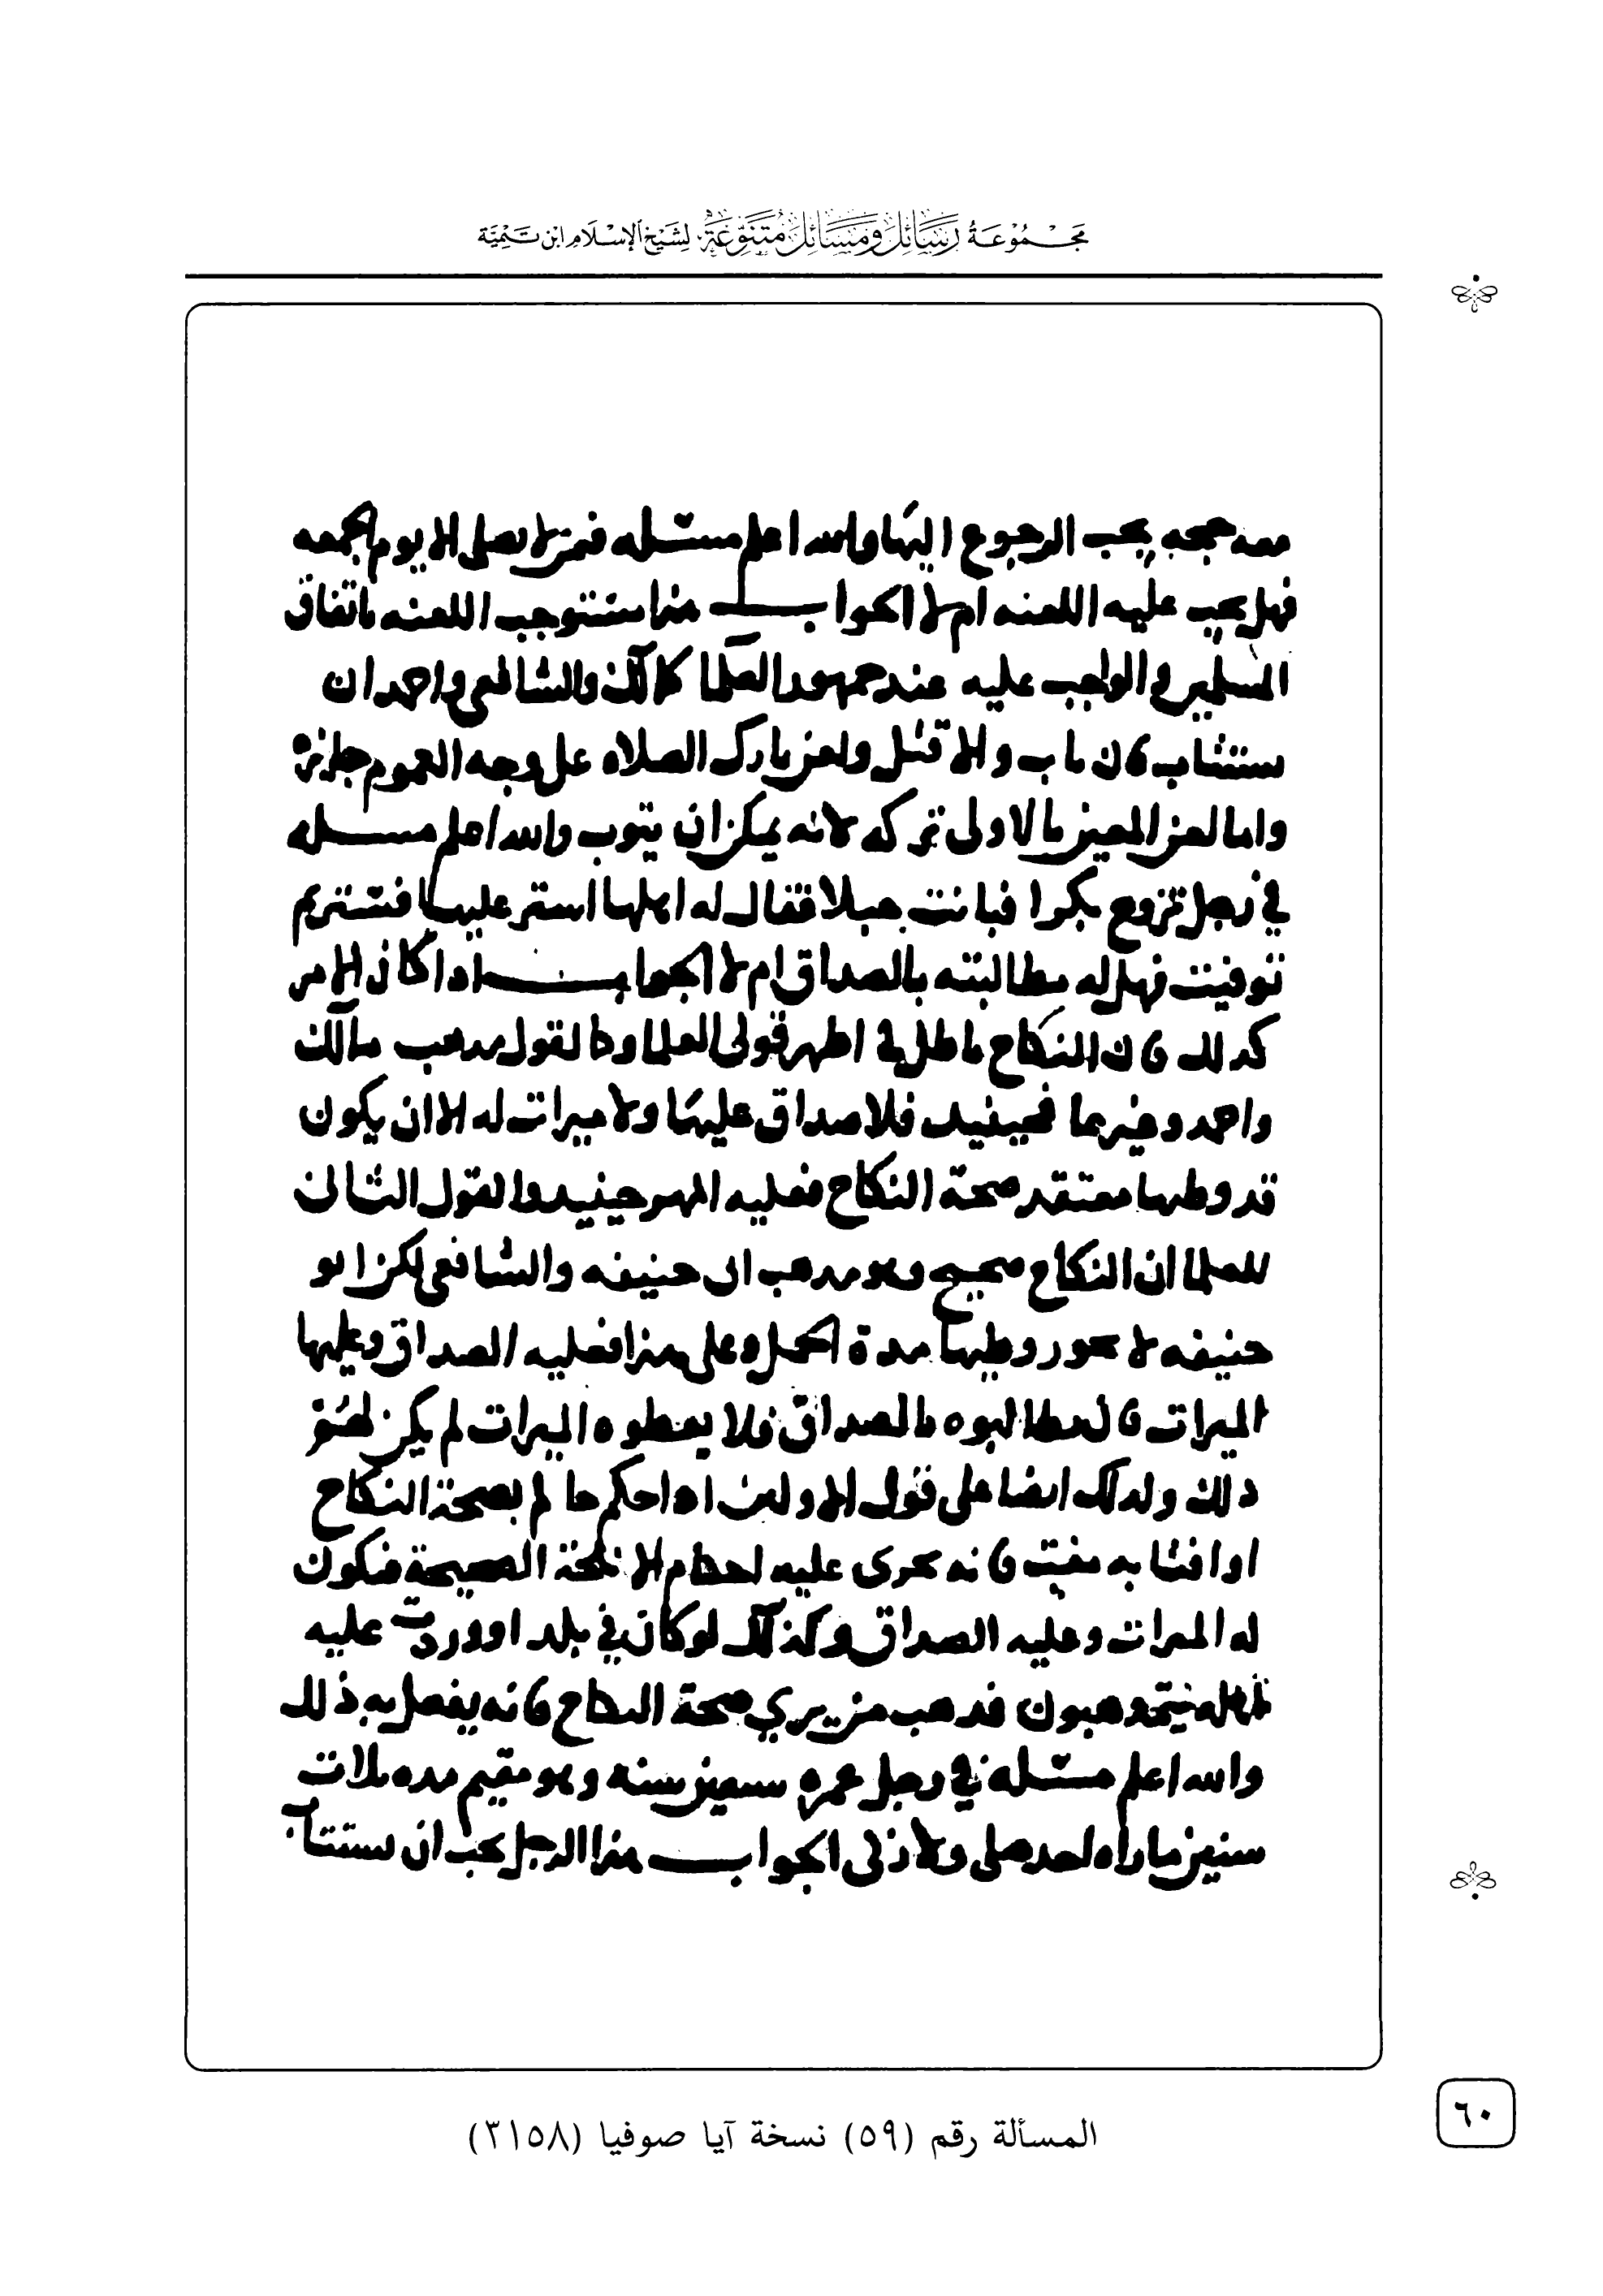 مجموعة رسائل ومسائل متنوعة لشيخ الإسلام ابن تيمية
معه حجه يجب الرجوع اليها والله اعلم مسئله فمن لا يصلى الا يوم الجمعه
فهل يجب عليه اللعنه ام لا الجواب هذا مستوجب اللعنه باتفاق
المسلمين والواجب عليه عند جمهور العلما كمالك والشافعي واحمد ان
يستتاب فان تاب والا قتل ولعن تارك الصلاه على وجه العموم جائزه
واما لعن المعين فالاولى تركه لانه يمكن ان يتوب والله اعلم مسله
في رجل تزوج بكرا فبانت حبلا فقال له اهلها استر عليها فستر ثم
توفيت فهل له مطالبته بالصداق ام لا الجواب اذا كان الامر
كذلك فان النكاح باطل في اظهر قولى العلما وهذا القول مذهب مالك
واحمد وغيرهما فحينيذ فلا صداق عليها ولا ميراث له الا ان يكون
قد وطيها معتقد صحة النكاح فعليه المهر حينيذ والقول الثاني
للعلما ان النكاح صحيح وهو مذهب ابى حنيفه والشافعي لكن ابو
حنيفه لا يجوز وطيها مدة الحمل وعلى هذا فعليه الصداق وعليها
الميراث فان طالبوه بالصداق فلا يعطوه الميراث لم يكن لهم
ذلك وكذلك ايضا على قول الاولين اذا حكم حاكم بصحة النكاح
او افتا به مفت فانه يجرى عليه احكام الانكحة الصحيحة فيكون
له الميراث وعليه الصداق وكذلك لو كان في بلد اووردت عليه
يذهبون مذهب من يري صحة النكاح فانه يفعل به ذلك
والله اعلم مسئله في رجل عمره سبعين سنه وهو مقيم مده ثلاث
سنين ما راه احد صلى ولا زكى الجواب هذا الرجل يجب ان يستتاب
٦٠
المسألة رقم (٥٩) نسخة آيا صوفيا (٣١٥٨)